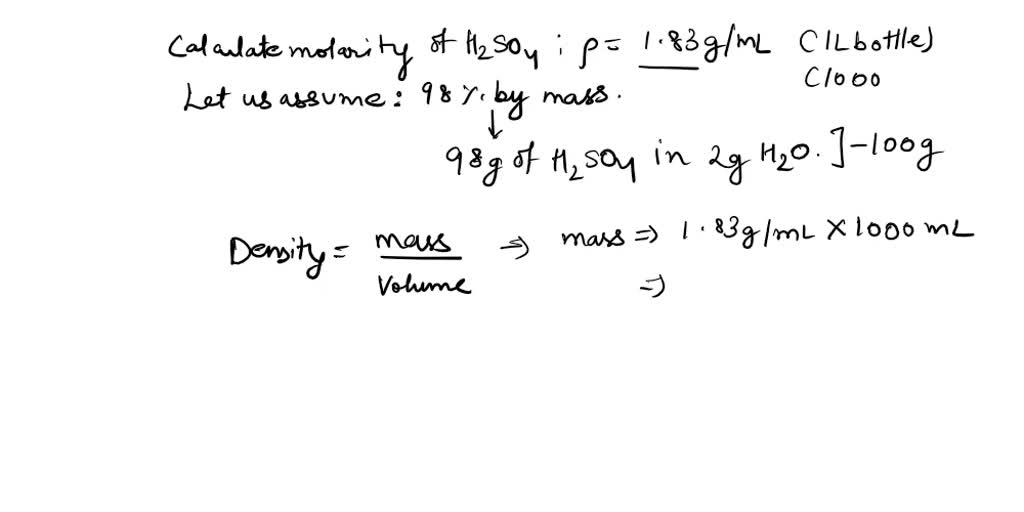 Calculate molarity of H2SO4 ; ρ = 1.83 g/mL (1L bottle)
(1000
Let us assume : 98 %. by mass.
↓
98g of H2SO4 in 2g H2O. ] - 100g
Density = mass / Volume ⇒ mass ⇒ 1.83g/mL × 1000 mL
⇒